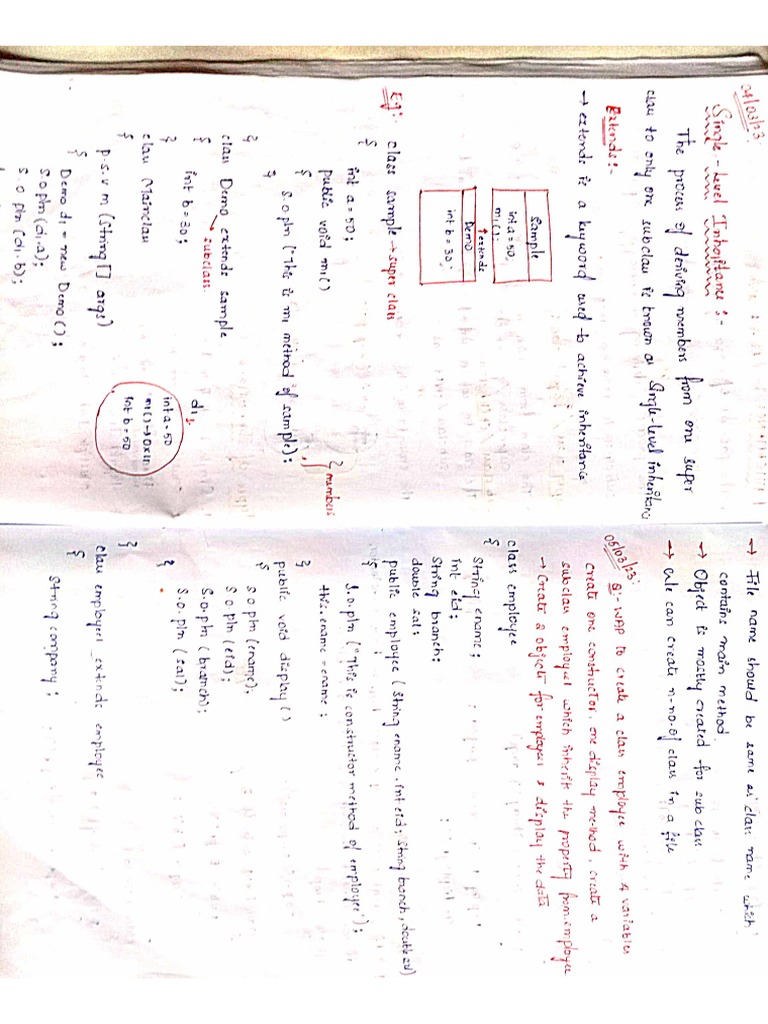 04/03/23
Single-Level Inheritance :-
The process of deriving members from one super
class to only one subclass is known as Single-level inheritance
Extends :-
→ extends is a keyword used to achieve inheritance
Sample
int a=50;
m1();
↑ extends
Demo
int b=30;
Eg:- class sample → super class
{
int a=50;
public void m1()
{
s.o.pln ("This is m1 method of sample);
} members
}
}
class Demo extends sample
{ subclass
int b=30;
}
class Mainclass
{
p.s.v m (String [] args)
{
Demo d1 = new Demo ();
s.o pln (d1.a);
s.o pln (d1.b);
d1
int a=50
m1() →
int b=50
→ File name should be same as class name which
contains main method.
→ Object is mostly created for sub class
→ We can create n-no.of class in a file
05/03/23:
Q:- WAP to create a class employee with 4 variables
create one constructor, one display method, create a
subclass employee1 which inherit the property from employee
→ Create 2 objects for employee1 & display the data
class employee
{
String ename;
int eid;
String branch;
double sal;
public employee (String ename, int eid; String branch, double sal)
{
s.o.pln ("This is constructor method of employee");
this.ename = ename;
}
public void display ()
{
s o pln (ename);
s o pln (eid);
s.o.pln (branch);
s.o.pln (sal);
}
}
class employee1 extends employee
{
String company;